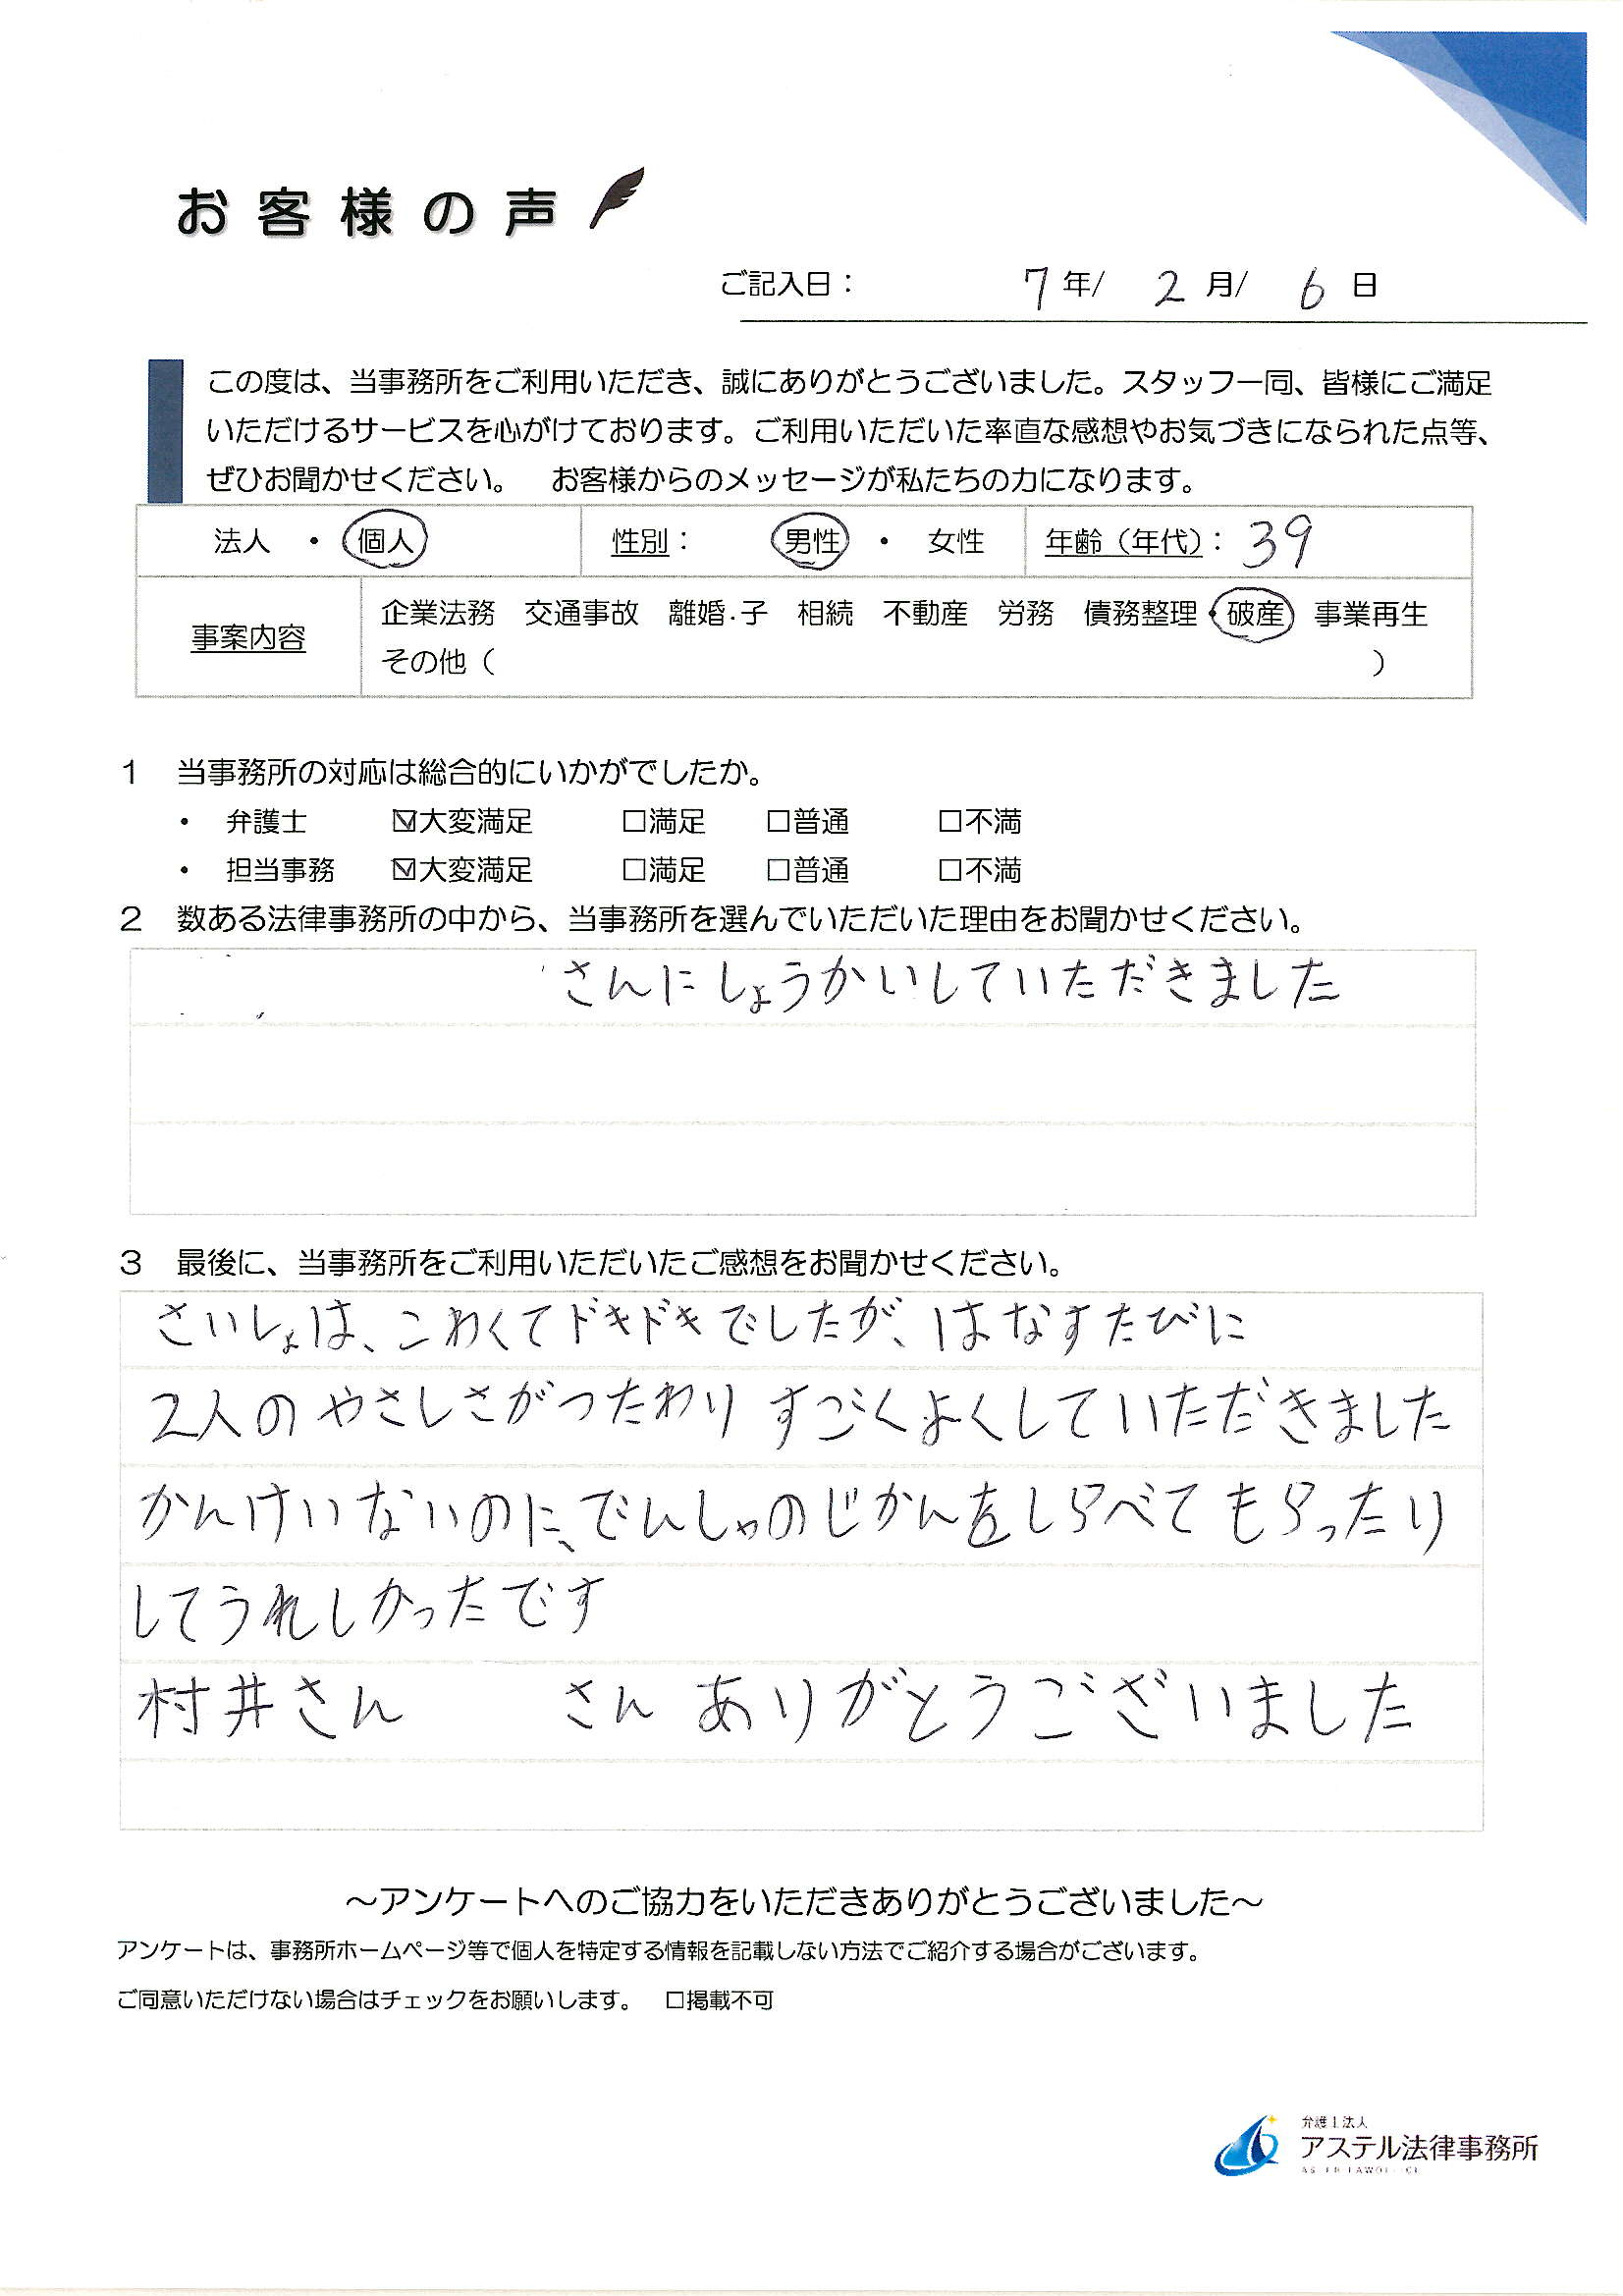 お客様の声
ご記入日： 7年/ 2月/ 6日
この度は、当事務所をご利用いただき、誠にありがとうございました。スタッフ一同、皆様にご満足
いただけるサービスを心がけております。ご利用いただいた率直な感想やお気づきになられた点等、
ぜひお聞かせください。 お客様からのメッセージが私たちの力になります。
法人 ・ 個人 性別： 男性 ・ 女性 年齢（年代）： 39
事案内容
企業法務 交通事故 離婚・子 相続 不動産 労務 債務整理・破産 事業再生
その他（ ）
1 当事務所の対応は総合的にいかがでしたか。
・ 弁護士 ☑大変満足 □満足 □普通 □不満
・ 担当事務 ☑大変満足 □満足 □普通 □不満
2 数ある法律事務所の中から、当事務所を選んでいただいた理由をお聞かせください。
さんにしょうかいしていただきました
3 最後に、当事務所をご利用いただいたご感想をお聞かせください。
さいしょは、こわくてドキドキでしたが、はなすたびに
2人のやさしさがつたわり すごくよくしていただきました
かんけいないのに、でんしゃのじかんをしらべてもらったり
してうれしかったです
村井さん さん ありがとうございました
～アンケートへのご協力をいただきありがとうございました～
アンケートは、事務所ホームページ等で個人を特定する情報を記載しない方法でご紹介する場合がございます。
ご同意いただけない場合はチェックをお願いします。 □掲載不可
弁護士法人
アステル法律事務所